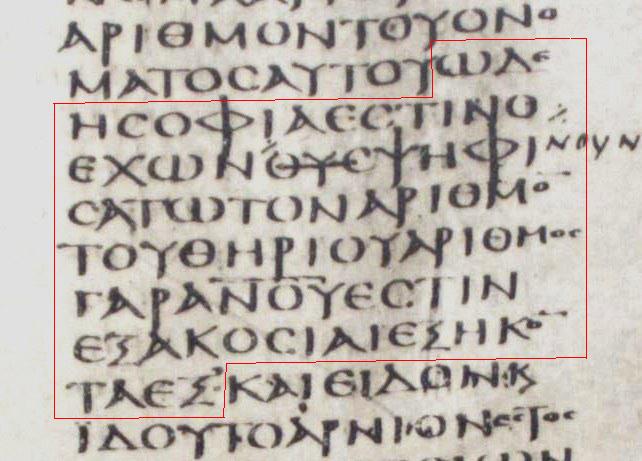 ΑΡΙΘΜΟΝΤΟΥΟΝΟ
ΜΑΤΟϹΑΥΤΟΥΩΔΕ
ΗϹΟΦΙΑΕϹΤΙΝΟ
ΕΧΩΝΟΥϹΨΗΦΙ ΝΟΥΝ
ϹΑΤΩΤΟΝΑΡΙΘΜΟ̅
ΤΟΥΘΗΡΙΟΥΑΡΙΘΜΟϹ
ΓΑΡΑ̅Ν̅Ο̅Υ̅ΕϹΤΙΝ
ΕΞΑΚΟϹΙΑΙΕΞΗΚΟ̅
ΤΑΕΞ·ΚΑΙΕΙΔΟΝϏ
ΙΔΟΥΤΟΑΡΝΙΟΝΕϹΤΟϹ